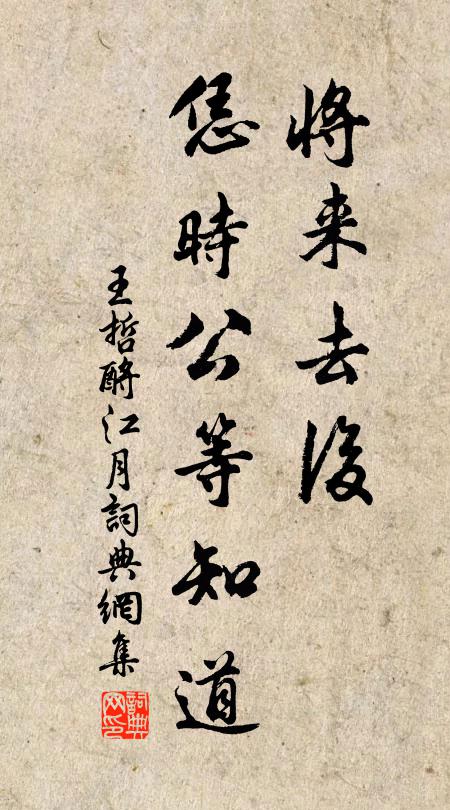 將来去後
恁時公等知道
王哲酹江月詞典網集
詞典网印